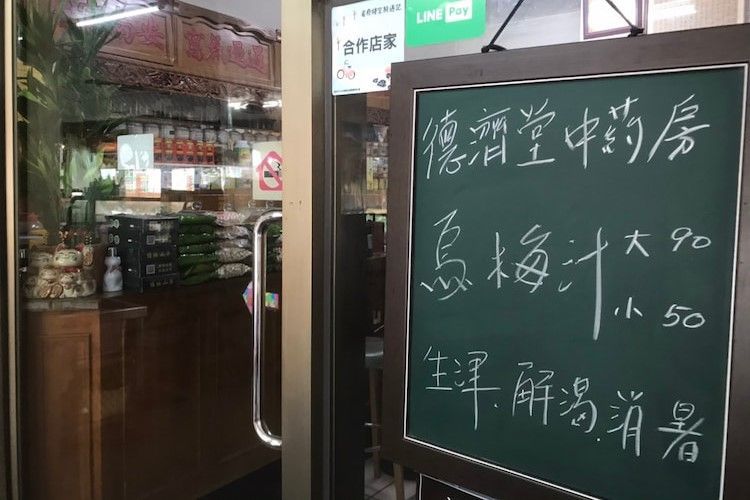 LINE Pay
合作店家
德濟堂中葯房
烏梅汁 大 90
小 50
生津.解渴.消暑